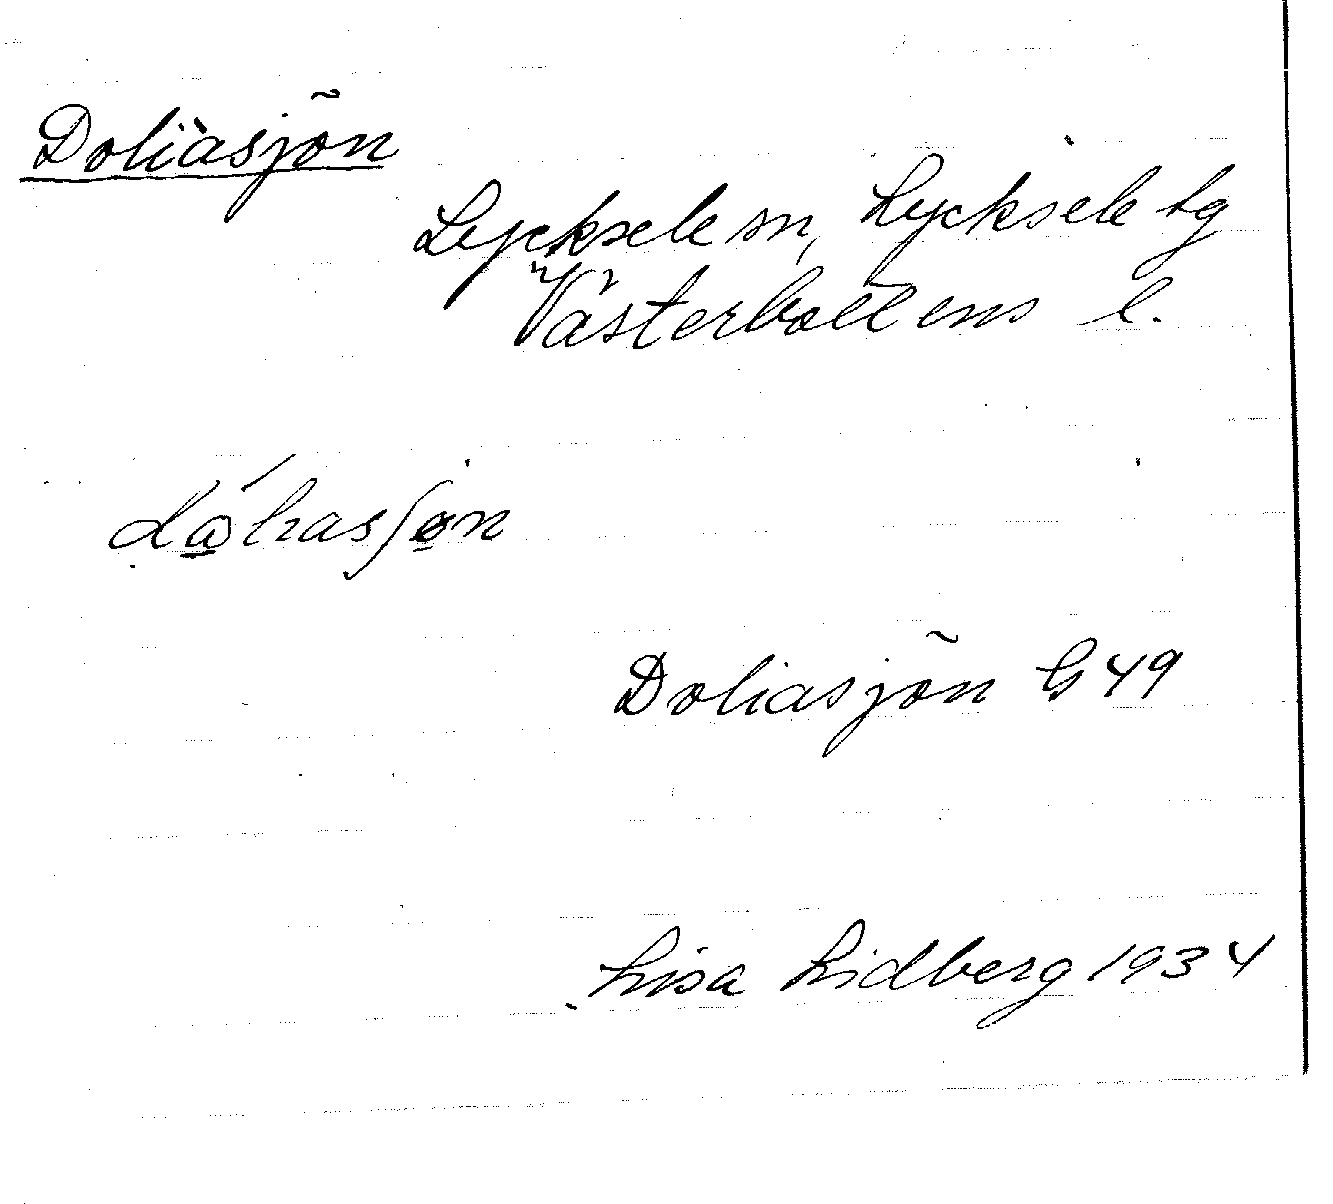 Doliasjön
Lycksele sn, Lycksele tg
Västerbottens l.
Doliasjön G 49
Lisa Lidberg 1934